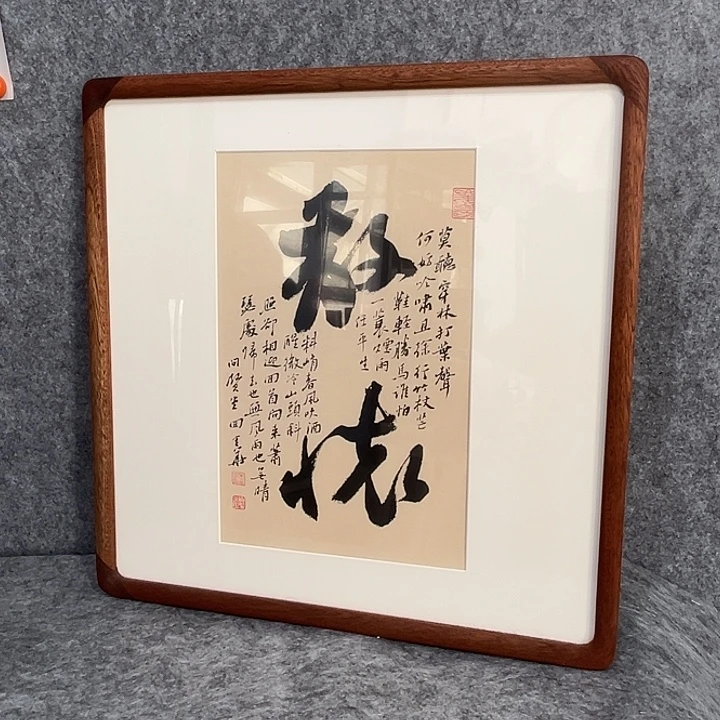 釋懷
莫聽穿林打葉聲
何妨吟嘯且徐行竹杖芒
鞋輕勝馬誰怕
一蓑煙雨
任平生
料峭春風吹酒
醒微冷山頭斜
照却相迎回首向來蕭
瑟處歸去也無風雨也無晴